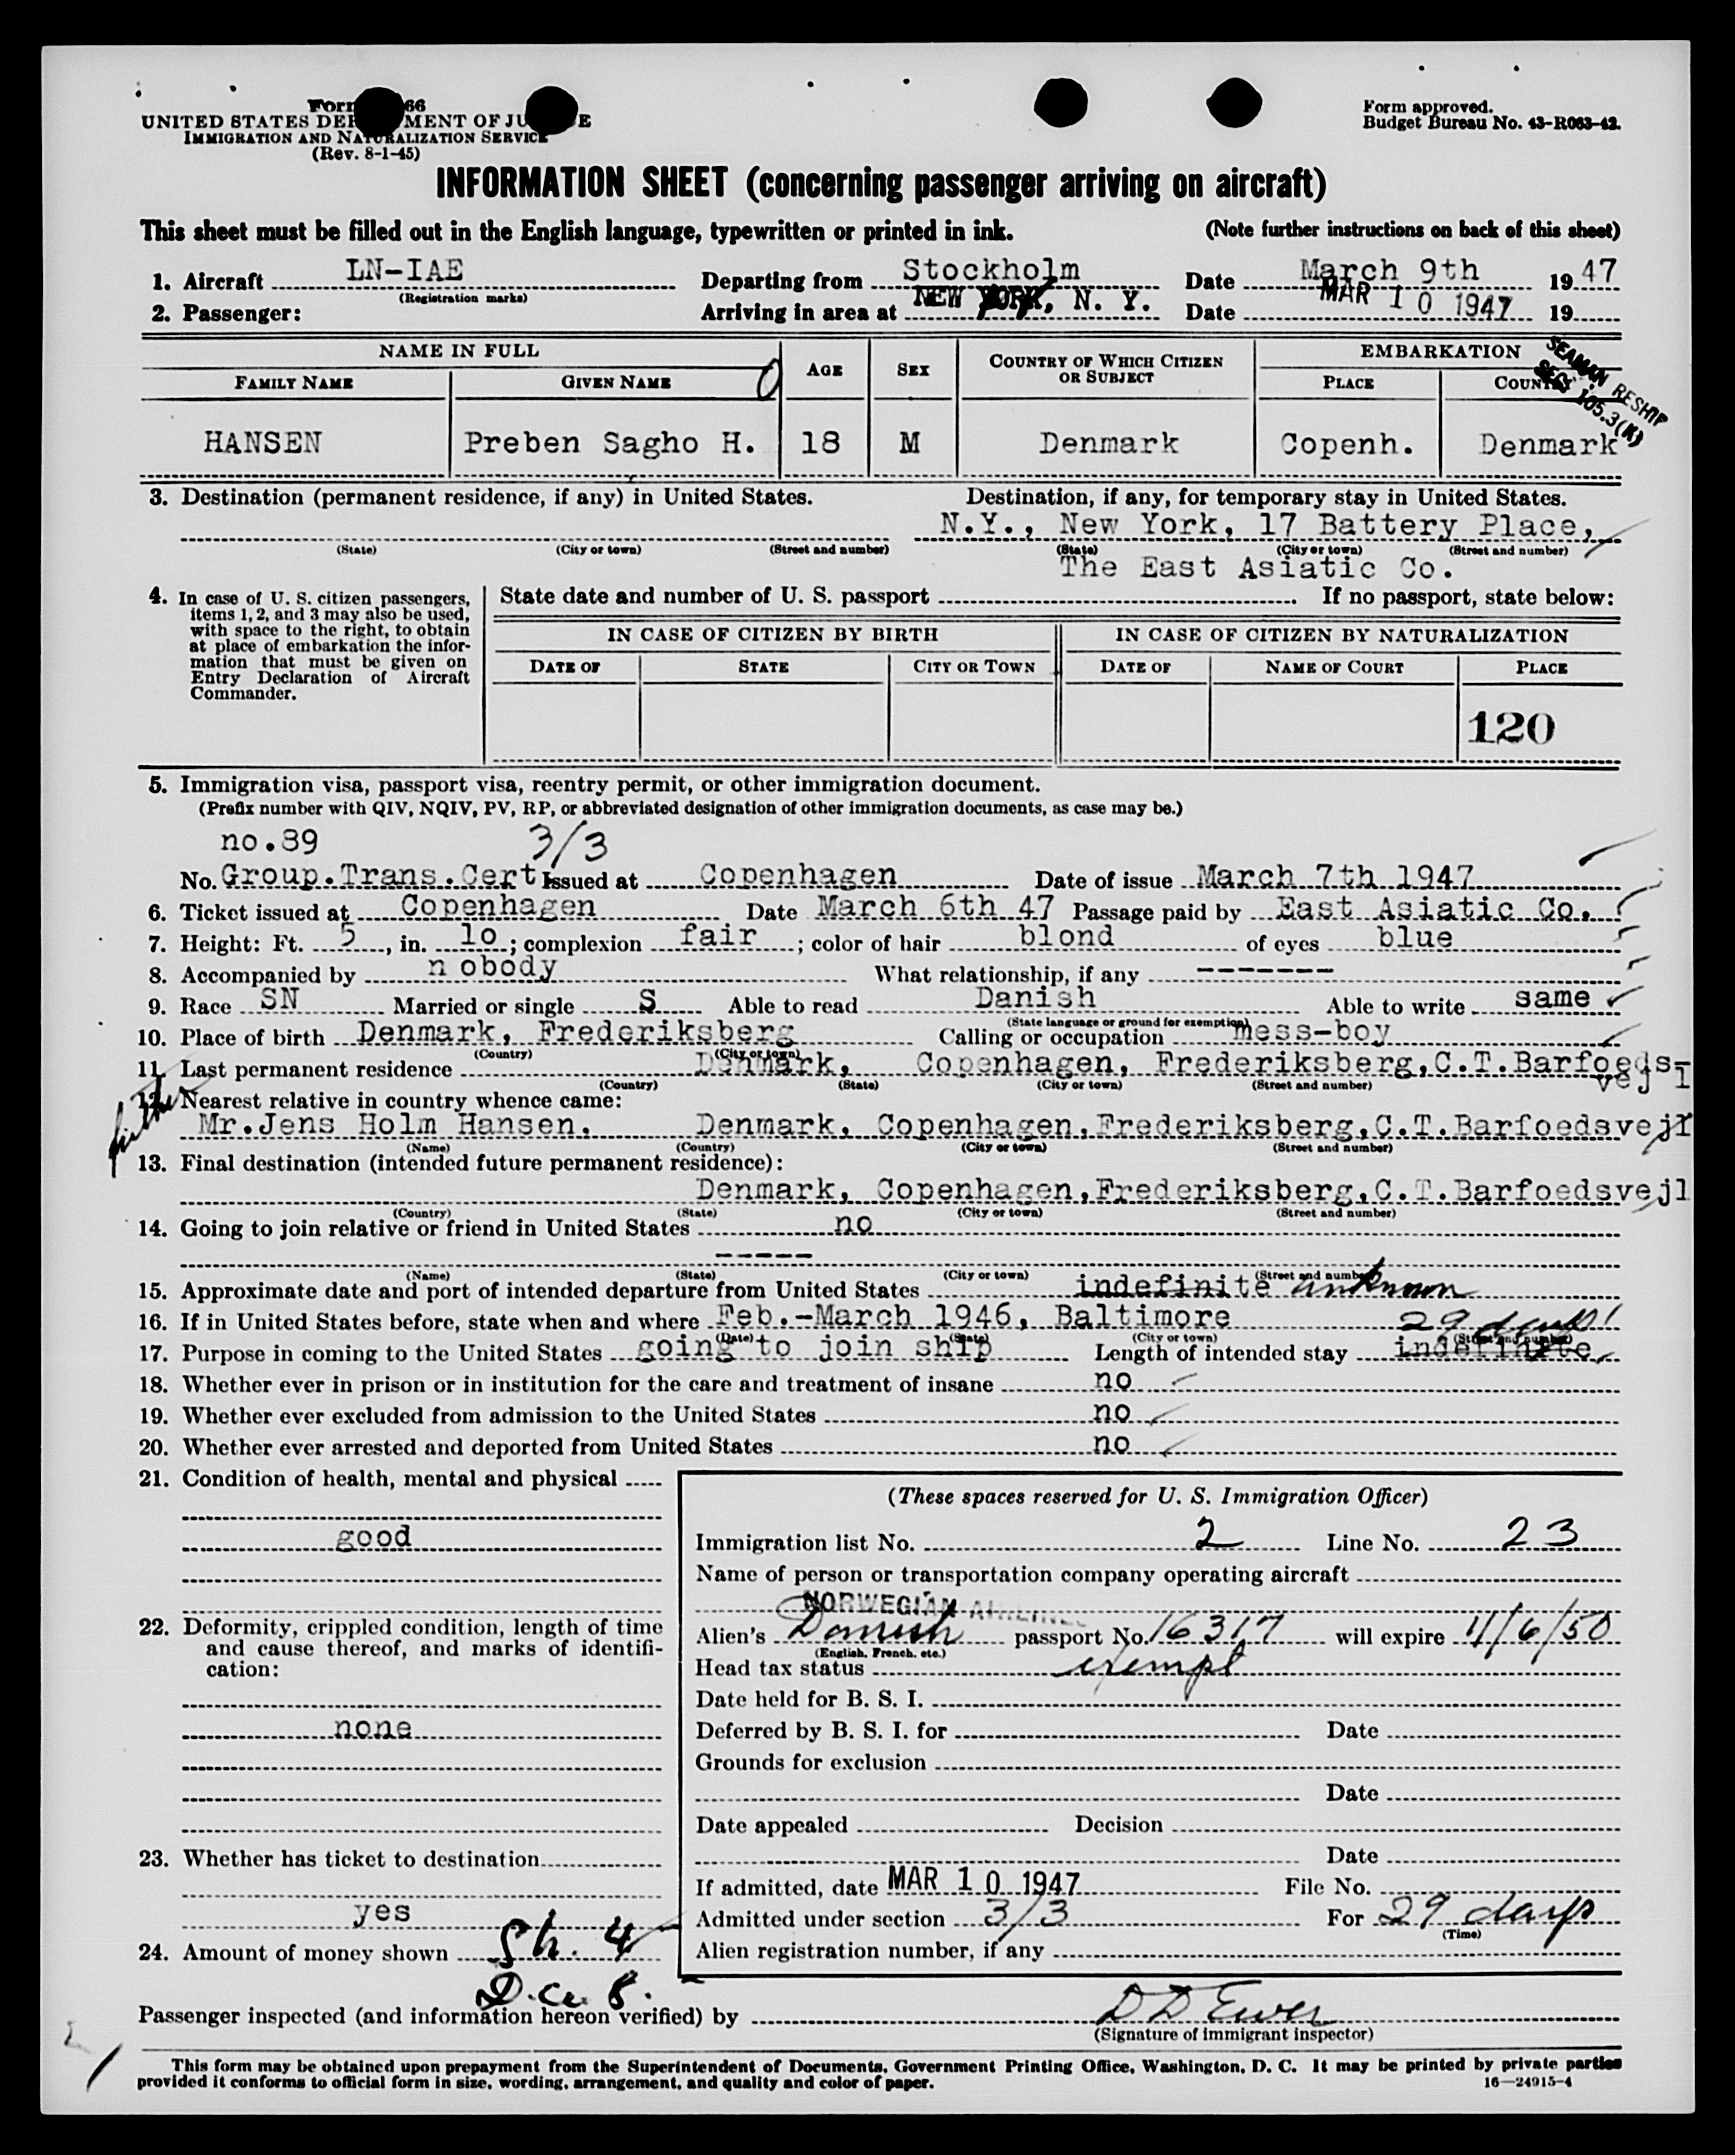 UNITED STATES DEPARTMENT OF JUSTICE
IMMIGRATION AND NATURALIZATION SERVICE
(Rev. 8-1-45)
Form approved.
Budget Bureau No. 43-R063-42.
INFORMATION SHEET (concerning passenger arriving on aircraft)
This sheet must be filled out in the English language, typewritten or printed in ink. (Note further instructions on back of this sheet)
1. Aircraft LN-IAE Departing from Stockholm Date March 9th 1947
(Registration marks)
2. Passenger: Arriving in area at NEW YORK, N. Y. Date MAR 10 1947 19
NAME IN FULL AGE SEX COUNTRY OF WHICH CITIZEN OR SUBJECT EMBARKATION
FAMILY NAME GIVEN NAME PLACE COUNTRY
SEAMAN RESHIP
SEC. 105.3(K)
HANSEN Preben Sagho H. 18 M Denmark Copenh. Denmark
3. Destination (permanent residence, if any) in United States. Destination, if any, for temporary stay in United States.
N.Y., New York, 17 Battery Place,
(State) (City or town) (Street and number) (State) (City or town) (Street and number)
The East Asiatic Co.
4. In case of U. S. citizen passengers, items 1, 2, and 3 may also be used, with space to the right, to obtain at place of embarkation the information that must be given on Entry Declaration of Aircraft Commander.
State date and number of U. S. passport If no passport, state below:
IN CASE OF CITIZEN BY BIRTH IN CASE OF CITIZEN BY NATURALIZATION
DATE OF STATE CITY OR TOWN DATE OF NAME OF COURT PLACE
120
5. Immigration visa, passport visa, reentry permit, or other immigration document.
(Prefix number with QIV, NQIV, PV, RP, or abbreviated designation of other immigration documents, as case may be.)
no.39 3/3
No. Group.Trans.Cert Issued at Copenhagen Date of issue March 7th 1947
6. Ticket issued at Copenhagen Date March 6th 47 Passage paid by East Asiatic Co.
7. Height: Ft. 5, in. 10; complexion fair; color of hair blond of eyes blue
8. Accompanied by n obody What relationship, if any -------
9. Race SN Married or single S Able to read Danish Able to write same
(State language or ground for exemption)
10. Place of birth Denmark, Frederiksberg Calling or occupation mess-boy
(Country) (City or town)
11. Last permanent residence Denmark, Copenhagen, Frederiksberg,C.T.Barfoeds-
vej 1
(Country) (State) (City or town) (Street and number)
12. Nearest relative in country whence came:
father
Mr.Jens Holm Hansen, Denmark, Copenhagen,Frederiksberg,C.T.Barfoedsvej1
(Name) (Country) (City or town) (Street and number)
13. Final destination (intended future permanent residence):
Denmark, Copenhagen,Frederiksberg,C.T.Barfoedsvej1
(Country) (State) (City or town) (Street and number)
14. Going to join relative or friend in United States no
-----
(Name) (State) (City or town) (Street and number)
15. Approximate date and port of intended departure from United States indefinite unknown
16. If in United States before, state when and where Feb.-March 1946, Baltimore
(Date) (State) (City or town) (Street and number)
29 days
17. Purpose in coming to the United States going to join ship Length of intended stay indefinite
18. Whether ever in prison or in institution for the care and treatment of insane no
19. Whether ever excluded from admission to the United States no
20. Whether ever arrested and deported from United States no
21. Condition of health, mental and physical
good
22. Deformity, crippled condition, length of time and cause thereof, and marks of identification:
none
23. Whether has ticket to destination
yes
24. Amount of money shown Sh. 4
D.Cu 8.
(These spaces reserved for U. S. Immigration Officer)
Immigration list No. 2 Line No. 23
Name of person or transportation company operating aircraft
NORWEGIAN AIRLINES
Alien's Danish passport No. 16317 will expire 11/6/50
(English, French, etc.)
Head tax status exempt
Date held for B. S. I.
Deferred by B. S. I. for Date
Grounds for exclusion
Date
Date appealed Decision
Date
If admitted, date MAR 10 1947 File No.
Admitted under section 3/3 For 29 days
(Time)
Alien registration number, if any
Passenger inspected (and information hereon verified) by D D Ewer
(Signature of immigrant inspector)
This form may be obtained upon prepayment from the Superintendent of Documents, Government Printing Office, Washington, D. C. It may be printed by private parties
provided it conforms to official form in size, wording, arrangement, and quality and color of paper. 16—24915-4